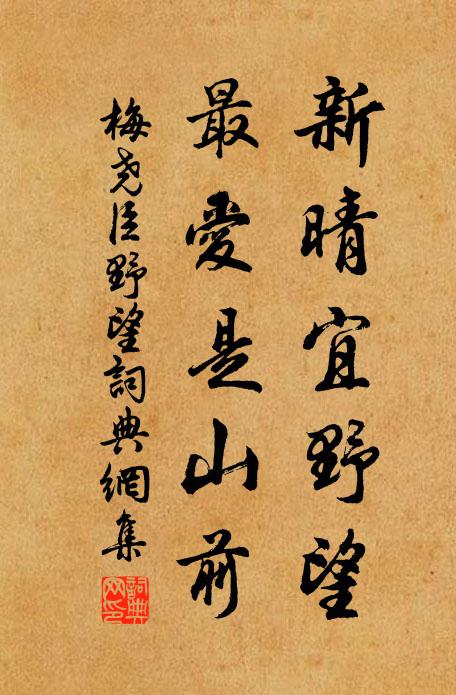 新晴宜野望
最愛是山前
梅堯臣野望詞典網集
詞典網印